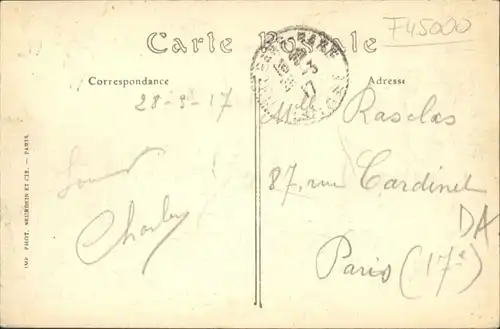 F45000
Carte Postale
GARE
3
17
Correspondance
Adresse
28-3-17
Mlle Rasclas
87, rue Cardinet
DA
Paris (17e)
Charley
IMP. PHOT. NEURDEIN ET CIE. — PARIS